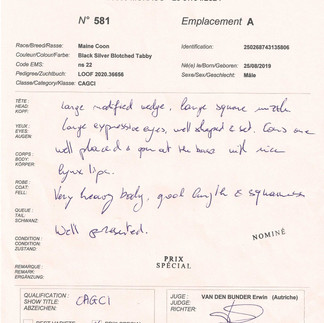 N° 581
Emplacement A
Race/Breed/Rasse: Maine Coon
Identification: 250268743135806
Couleur/Colour/Farbe: Black Silver Blotched Tabby
Code EMS: ns 22
Né(e) le/Born/Geboren: 25/08/2019
Pedigree/Zuchtbuch: LOOF 2020.36656
Sexe/Sex/Geschlecht: Mâle
Classe/Category/Klasse: CAGCI
TÊTE: HEAD KOPF:
large modified wedge, large square muzzle
YEUX: EYES: AUGEN:
large expressive eyes, well shaped & set. Ears are
CORPS: BODY KÖRPER
well placed & at the base with nice
lynx tips.
ROBE: COAT: FELL:
Very heavy body, good length &
QUEUE: TAIL: SCHWANZ:
CONDITION: CONDITION: ZUSTAND:
Well presented.
NOMINÉ
PRIX SPÉCIAL
REMARQUE: REMARK: ERGÄNZUNG:
QUALIFICATION: SHOW TITLE ABZEICHEN: CAGCI
JUGE: JUDGE: RICHTER: VAN DEN BUNDER Erwin (Autriche)